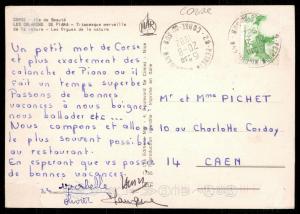 Corse
CORSE - Ile de Beauté
LES CALANCHE DE PIANA - Titanesque merveille
de la nature - Les Orgues de la nature
Un petit mot de Corse
plus exactement des
calanche de Piana ou il
Fait un temps superbe
Passons de bonnes
vacances à nous baigner
nous ballader etc...
Nous campons et allons
le plus souvent possible
au restaurant.
En esperant que vs passez
de bonnes vacances.
Mr et Mme PICHET
10 av Charlotte Corday
14 CAEN